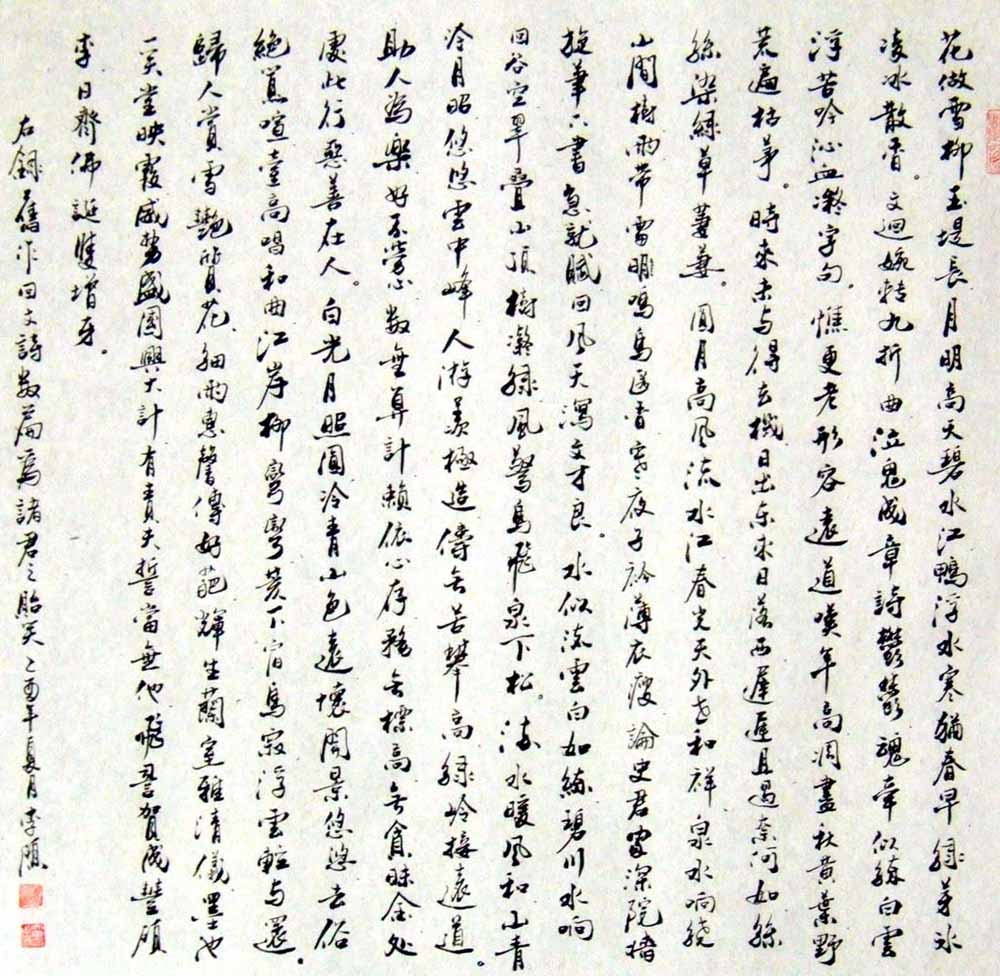 花傲雪柳玉堤長月明高天碧水江鴨浮水寒猶春早綠芽冰
凌冰散香。文迴婉轉九折曲泣鬼成章詩鬱鬱魂牽似練白雲
浮苦吟沁血凝字句。憔更老形容遠道嘆年高凋盡秋黃葉野
荒遍枯茅。時來未与得玄機日出東求日落西遲遲且遇奈何如絲
絲染綠草萋萋。圓月高風流水江春光天外去和祥泉水响繞
山間樹雨帶雷聽鳴鳥遥香寒夜子衿薄衣瘦論史君家深院牆
旋筆六書急就賦回風天瀉文才良。水似流雲白如練碧川水响
回谷空翠疊山頂樹凝綠風驚鳥飛泉下松。流水暖風和山青
冷月昭悠悠雲中峰人游羨極造儔去苦攀高綠岭接遠道。
助人為樂好不勞心數無算計賴依心存穩去標高去貪昧金处
處此行惡善在人。白光月照圓冷青山色遠懷閣景悠悠去俗
絕鳥喧臺高唱和曲江岸柳彎彎荒下宿鳥寂浮雲輕与還。
歸人賞雪艷質花細雨惠馨傳好葩輝生蘭室雅清儀墨池
一笑堂映霞威勢盛國興大計有責夫誓當無他飛雪賀成豐碩
李日齊佛誕雙增牙。
右錄舊作回文詩數篇爲諸君之貽笑乙酉年夏月李